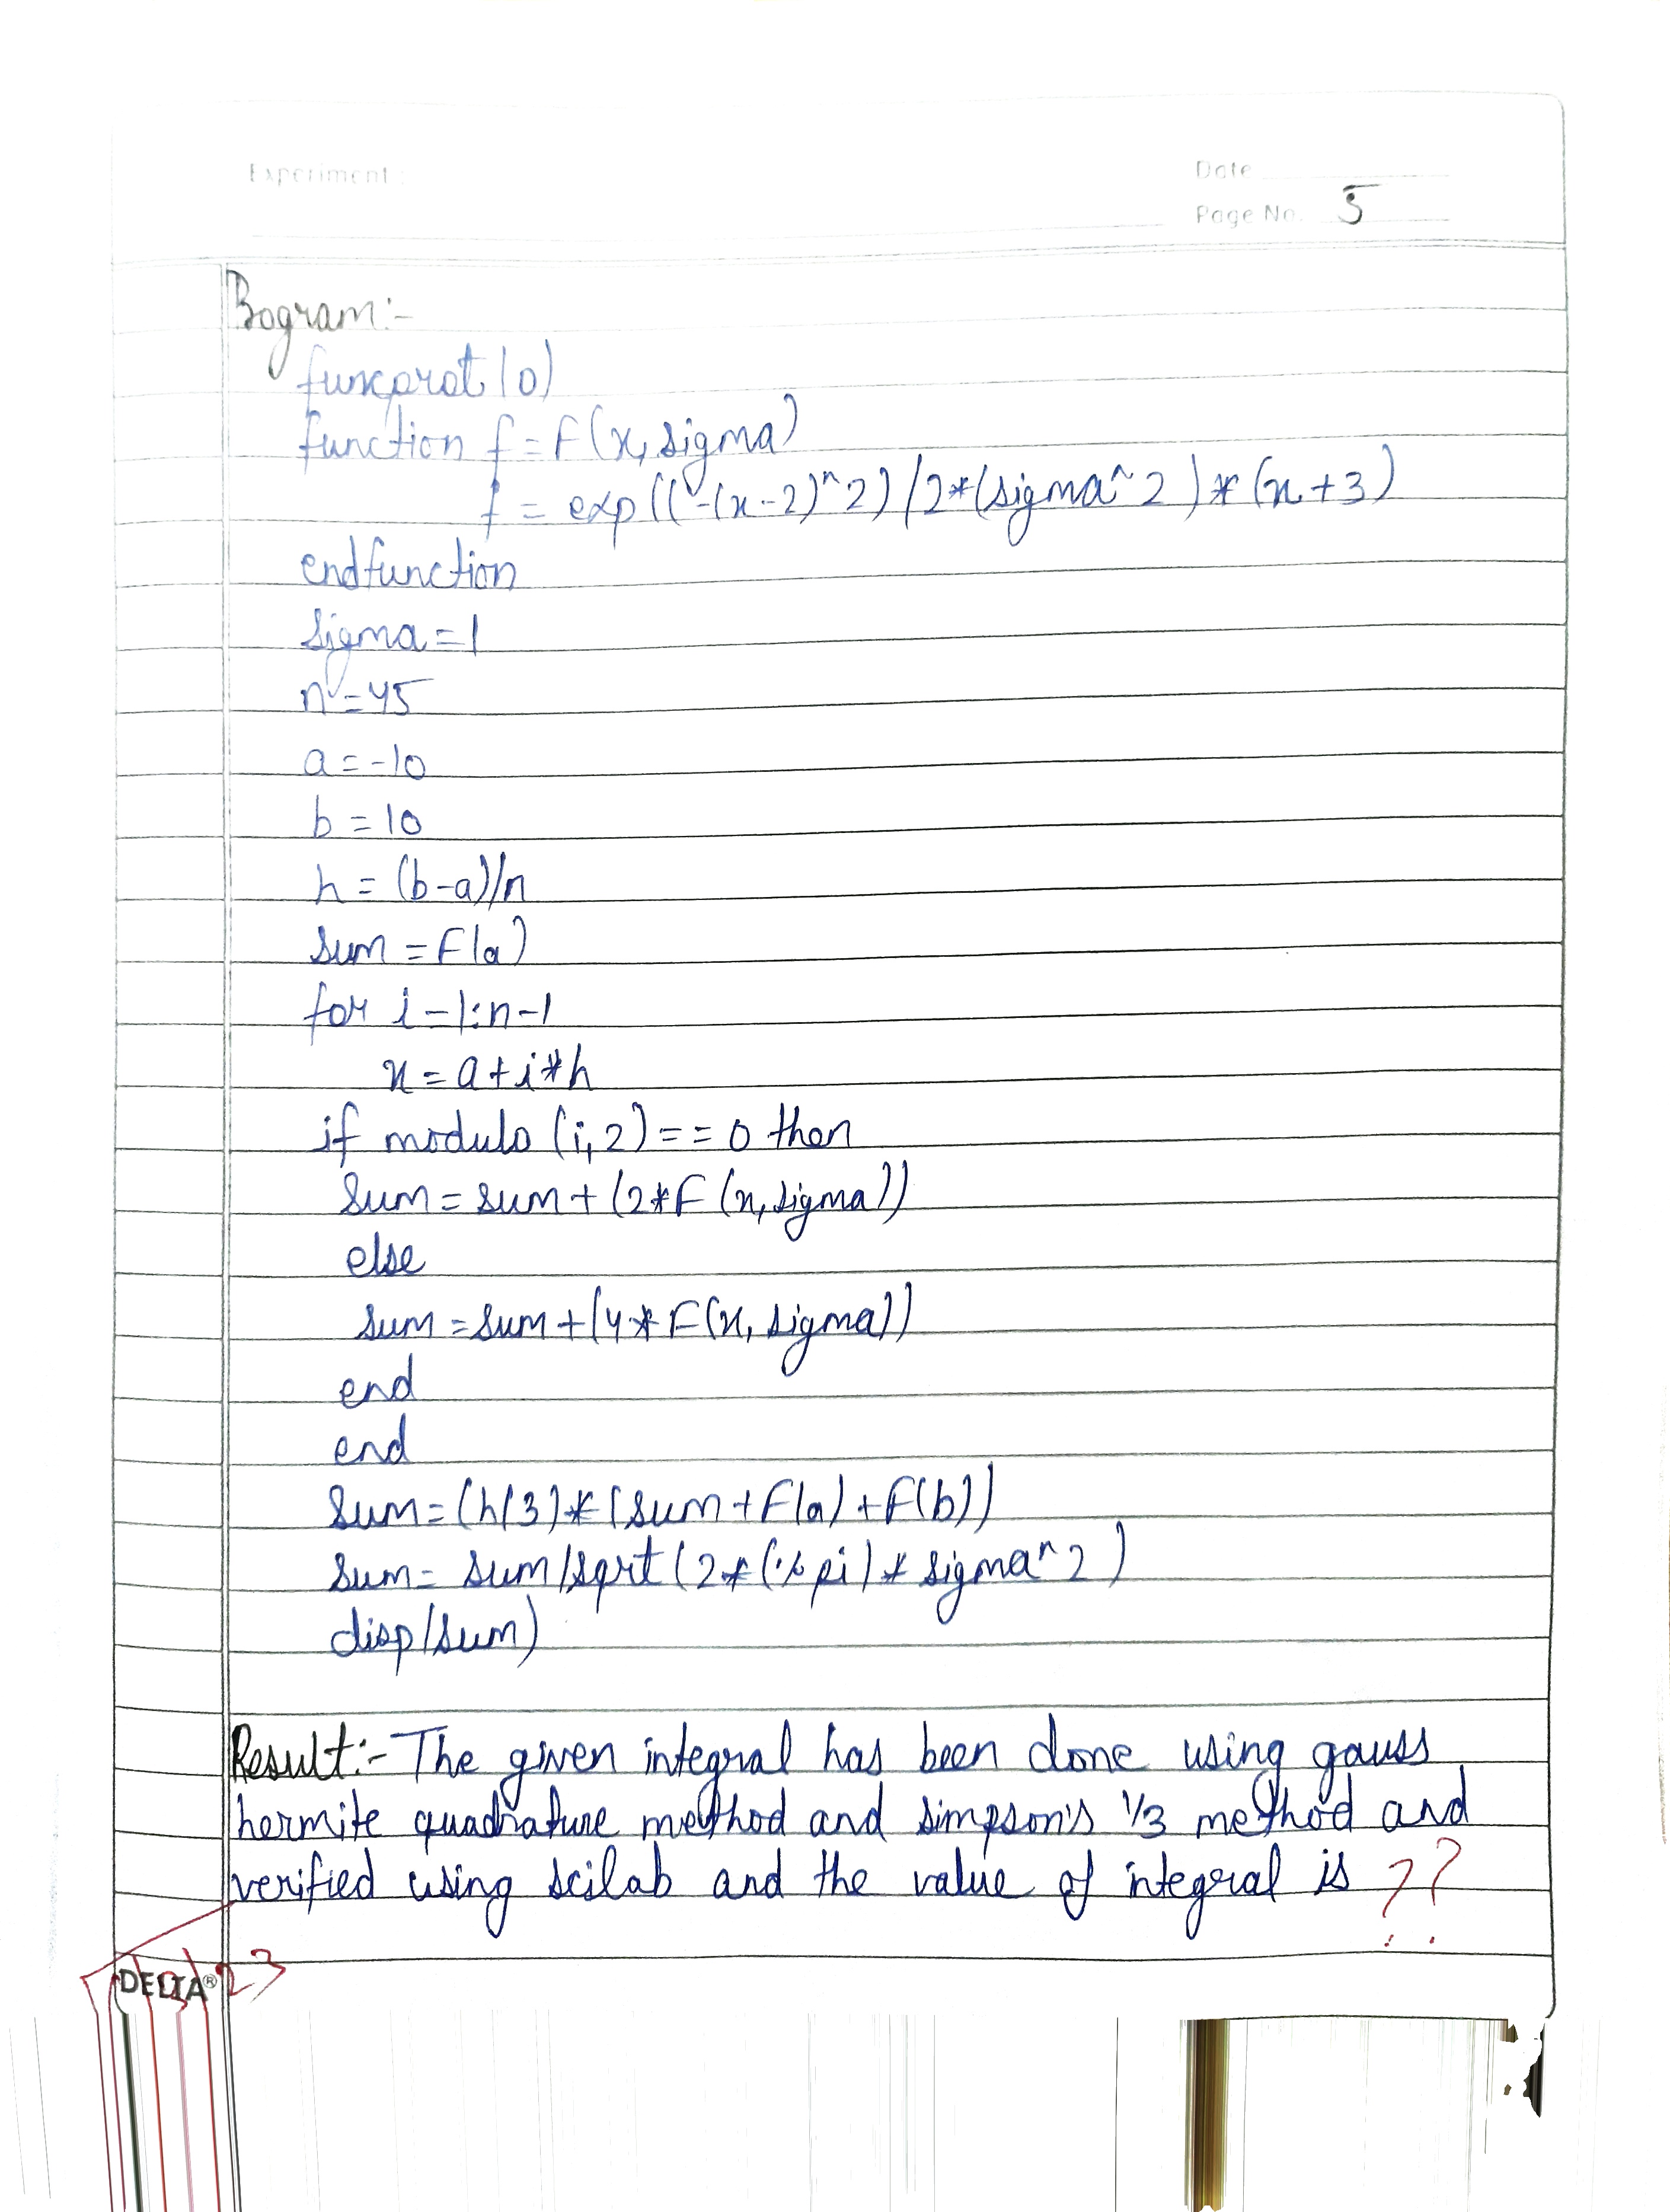 Experiment :
Date
Page No. 5
Program:-
funcprot(0)
function f = F(x, sigma)
f = exp((-(x-2)^2)/2*(sigma^2)*(x+3)
endfunction
sigma=1
n=45
a=-10
b=10
h=(b-a)/n
sum=F(a)
for i-1:n-1
x=a+i*h
if modulo (i,2)==0 then
sum=sum+(2*F(x,sigma))
else
sum=sum+(4*F(x, sigma))
end
end
sum=(h/3)*(sum+F(a)+F(b))
sum=sum/sqrt(2*(%pi)*sigma^2)
disp(sum)
Result:- The given integral has been done using gauss
hermite quadrature method and simpson's 1/3 method and
verified using scilab and the value of integral is ??
DELTA®